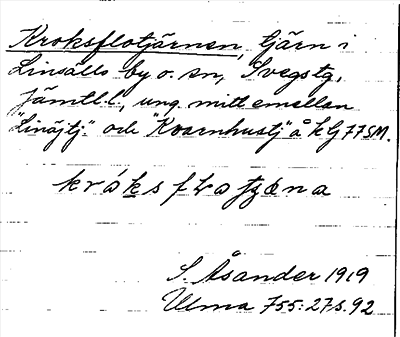 Kroksflotjärnen, tjärn i
Linsälls by o. sn, Svegs tg,
Jämtl. l., ung. mitt emellan
"Linäjtj." och "Kvarnhustj" å kbj 77 SM.
kråksf
S. Åsander 1919
Ulma 755: 27 s. 92